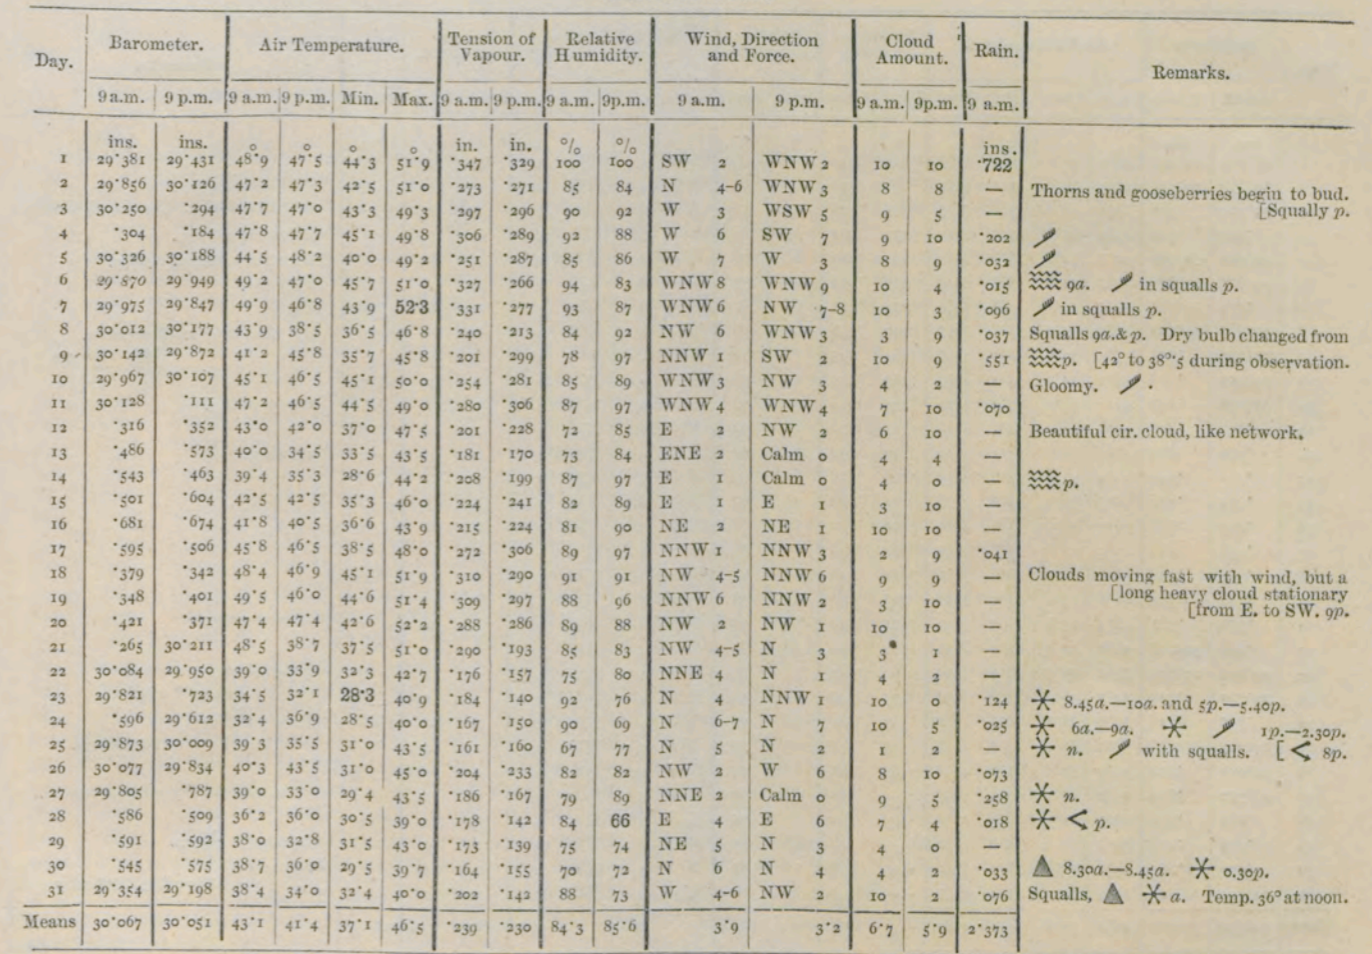 Day. Barometer. Air Temperature. Tension of Vapour. Relative Humidity. Wind, Direction and Force. Cloud Amount. Rain. Remarks.
9 a.m. 9 p.m. 9 a.m. 9 p.m. Min. Max. 9 a.m. 9 p.m. 9 a.m. 9p.m. 9 a.m. 9 p.m. 9 a.m. 9p.m. 9 a.m.
ins. ins. ° ° ° ° in. in. % % ins.
1 29·381 29·431 48·9 47·5 44·3 51·9 ·347 ·329 100 100 SW 2 WNW 2 10 10 ·722
2 29·856 30·126 47·2 47·3 42·5 51·0 ·273 ·271 85 84 N 4-6 WNW 3 8 8 — Thorns and gooseberries begin to bud.
3 30·250 ·294 47·7 47·0 43·3 49·3 ·297 ·296 90 92 W 3 WSW 5 9 5 — [Squally p.
4 ·304 ·184 47·8 47·7 45·1 49·8 ·306 ·289 92 88 W 6 SW 7 9 10 ·202
5 30·326 30·188 44·5 48·2 40·0 49·2 ·251 ·287 85 86 W 7 W 3 8 9 ·032
6 29·870 29·949 49·2 47·0 45·7 51·0 ·327 ·266 94 83 WNW 8 WNW 9 10 4 ·015 9a. in squalls p.
7 29·975 29·847 49·9 46·8 43·9 52·3 ·331 ·277 93 87 WNW 6 NW 7-8 10 3 ·096 in squalls p.
8 30·012 30·177 43·9 38·5 36·5 46·8 ·240 ·213 84 92 NW 6 WNW 3 3 9 ·037 Squalls 9a.& p. Dry bulb changed from
9 30·142 29·872 41·2 45·8 35·7 45·8 ·201 ·299 78 97 NNW 1 SW 2 10 9 ·551 p. [42° to 38°·5 during observation.
10 29·967 30·107 45·1 46·5 45·1 50·0 ·254 ·281 85 89 WNW 3 NW 3 4 2 — Gloomy. .
11 30·128 ·111 47·2 46·5 44·5 49·0 ·280 ·306 87 97 WNW 4 WNW 4 7 10 ·070
12 ·316 ·352 43·0 42·0 37·0 47·5 ·201 ·228 72 85 E 2 NW 2 6 10 — Beautiful cir. cloud, like network.
13 ·486 ·573 40·0 34·5 33·5 43·5 ·181 ·170 73 84 ENE 2 Calm 0 4 4 —
14 ·543 ·463 39·4 35·3 28·6 44·2 ·208 ·199 87 97 E 1 Calm 0 4 0 — p.
15 ·501 ·604 42·5 42·5 35·3 46·0 ·224 ·241 82 89 E 1 E 1 3 10 —
16 ·681 ·674 41·8 40·5 36·6 43·9 ·215 ·224 81 90 NE 2 NE 1 10 10 —
17 ·595 ·506 45·8 46·5 38·5 48·0 ·272 ·306 89 97 NNW 1 NNW 3 2 9 ·041
18 ·379 ·342 48·4 46·9 45·1 51·9 ·310 ·290 91 91 NW 4-5 NNW 6 9 9 — Clouds moving fast with wind, but a
19 ·348 ·401 49·5 46·0 44·6 51·4 ·309 ·297 88 96 NNW 6 NNW 2 3 10 — [long heavy cloud stationary
20 ·421 ·371 47·4 47·4 42·6 52·2 ·288 ·286 89 88 NW 2 NW 1 10 10 — [from E. to SW. 9p.
21 ·265 30·211 48·5 38·7 37·5 51·0 ·290 ·193 85 83 NW 4-5 N 3 3 1 —
22 30·084 29·950 39·0 33·9 32·3 42·7 ·176 ·157 75 80 NNE 4 N 1 4 2 —
23 29·821 ·723 34·5 32·1 28·3 40·9 ·184 ·140 92 76 N 4 NNW 1 10 0 ·124 8.45a.—10a. and 5p.—5.40p.
24 ·596 29·612 32·4 36·9 28·5 40·0 ·167 ·150 90 69 N 6-7 N 7 10 5 ·025 6a.—9a. 1p.—2.30p.
25 29·873 30·009 39·3 35·5 31·0 43·5 ·161 ·160 67 77 N 5 N 2 1 2 — n. with squalls. [ 8p.
26 30·077 29·834 40·3 43·5 31·0 45·0 ·204 ·233 82 82 NW 2 W 6 8 10 ·073
27 29·805 ·787 39·0 33·0 29·4 43·5 ·186 ·167 79 89 NNE 2 Calm 0 9 5 ·258 n.
28 ·586 ·509 36·2 36·0 30·5 39·0 ·178 ·142 84 66 E 4 E 6 7 4 ·018 p.
29 ·591 ·592 38·0 32·8 31·5 43·0 ·173 ·139 75 74 NE 5 N 3 4 0 —
30 ·545 ·575 38·7 36·0 29·5 39·7 ·164 ·155 70 72 N 6 N 4 4 2 ·033 8.30a.—8.45a. 0.30p.
31 29·354 29·198 38·4 34·0 32·4 40·0 ·202 ·142 88 73 W 4-6 NW 2 10 2 ·076 Squalls, a. Temp. 36° at noon.
Means 30·067 30·051 43·1 41·4 37·1 46·5 ·239 ·230 84·3 85·6 3·9 3·2 6·7 5·9 2·373